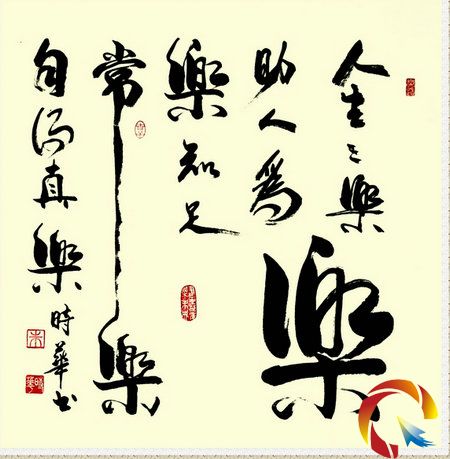 人生之樂
助人為樂
樂知足
常樂
自得真樂
時華书